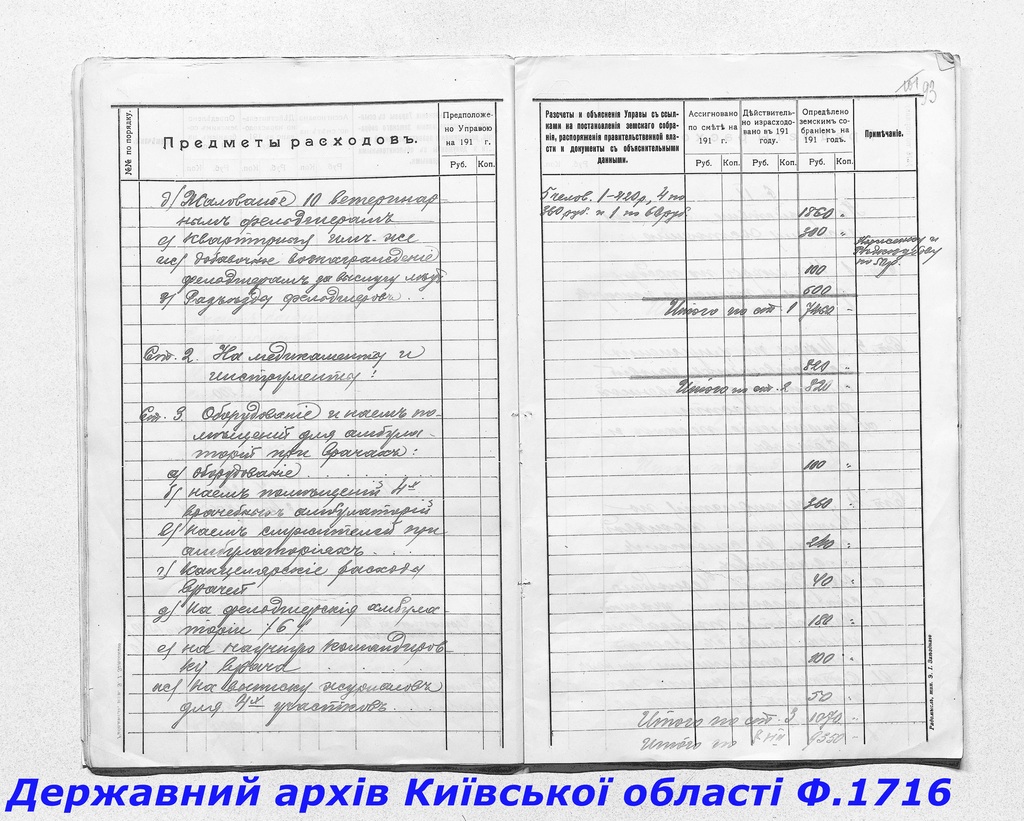 101 93
№№ по порядку.
Предметы расходовъ.
Предположе-
но Управою
на 191 г.
Руб. Коп.
д) Жалованье 10 ветеринар
нымъ фельдшерамъ
е) Квартирныя имъ-же
ж) добавочное вознагражденіе
фельдшерамъ за выслугу лѣтъ
з) Разъѣзды фельдшеровъ . .
Ст. 2. На медикаменты и
инструменты :
Ст. 3. Оборудованіе и наемъ по-
мѣщеній для амбула-
торій при врачахъ :
а) оборудованіе . . . .
б) наемъ помѣщеній 4х
врачебныхъ амбулаторій
в) наемъ служителей при
амбулаторіяхъ . . . .
г) Канцелярскіе расходы
врачей . . . . .
д) на фельдшерскія амбула-
торіи /6/ . . . .
е) на научную командиров-
ку врача . . . . .
ж) на выписку журналовъ
для 4х участковъ . . .
Разсчеты и объясненія Управы съ ссыл-
ками на постановленія земскаго собра-
нія, распоряженія правительственной влас-
ти и документы съ объяснительными
данными.
Ассигновано
по смѣтѣ на
191 г.
Руб. Коп.
Дѣйствитель-
но израсходо-
вано въ 191
году.
Руб. Коп.
Опредѣлено
земскимъ со-
браніемъ на
191 годъ.
Руб. Коп.
Примѣчаніе.
5 челов. 1-420р, 4 по
360 руб. и 1 по 60 руб.
1860 "
300 "
100 "
600
Итого по ст. 1 7460 -
820 "
Итого по ст. 2 820 -
100 "
360 "
240 "
40 "
180 "
100 "
50 "
Итого по ст. 3 1070 -
Итого по 9350 -
по 50 р.
Радомысль, тип.
Державний архів Київської області Ф.1716